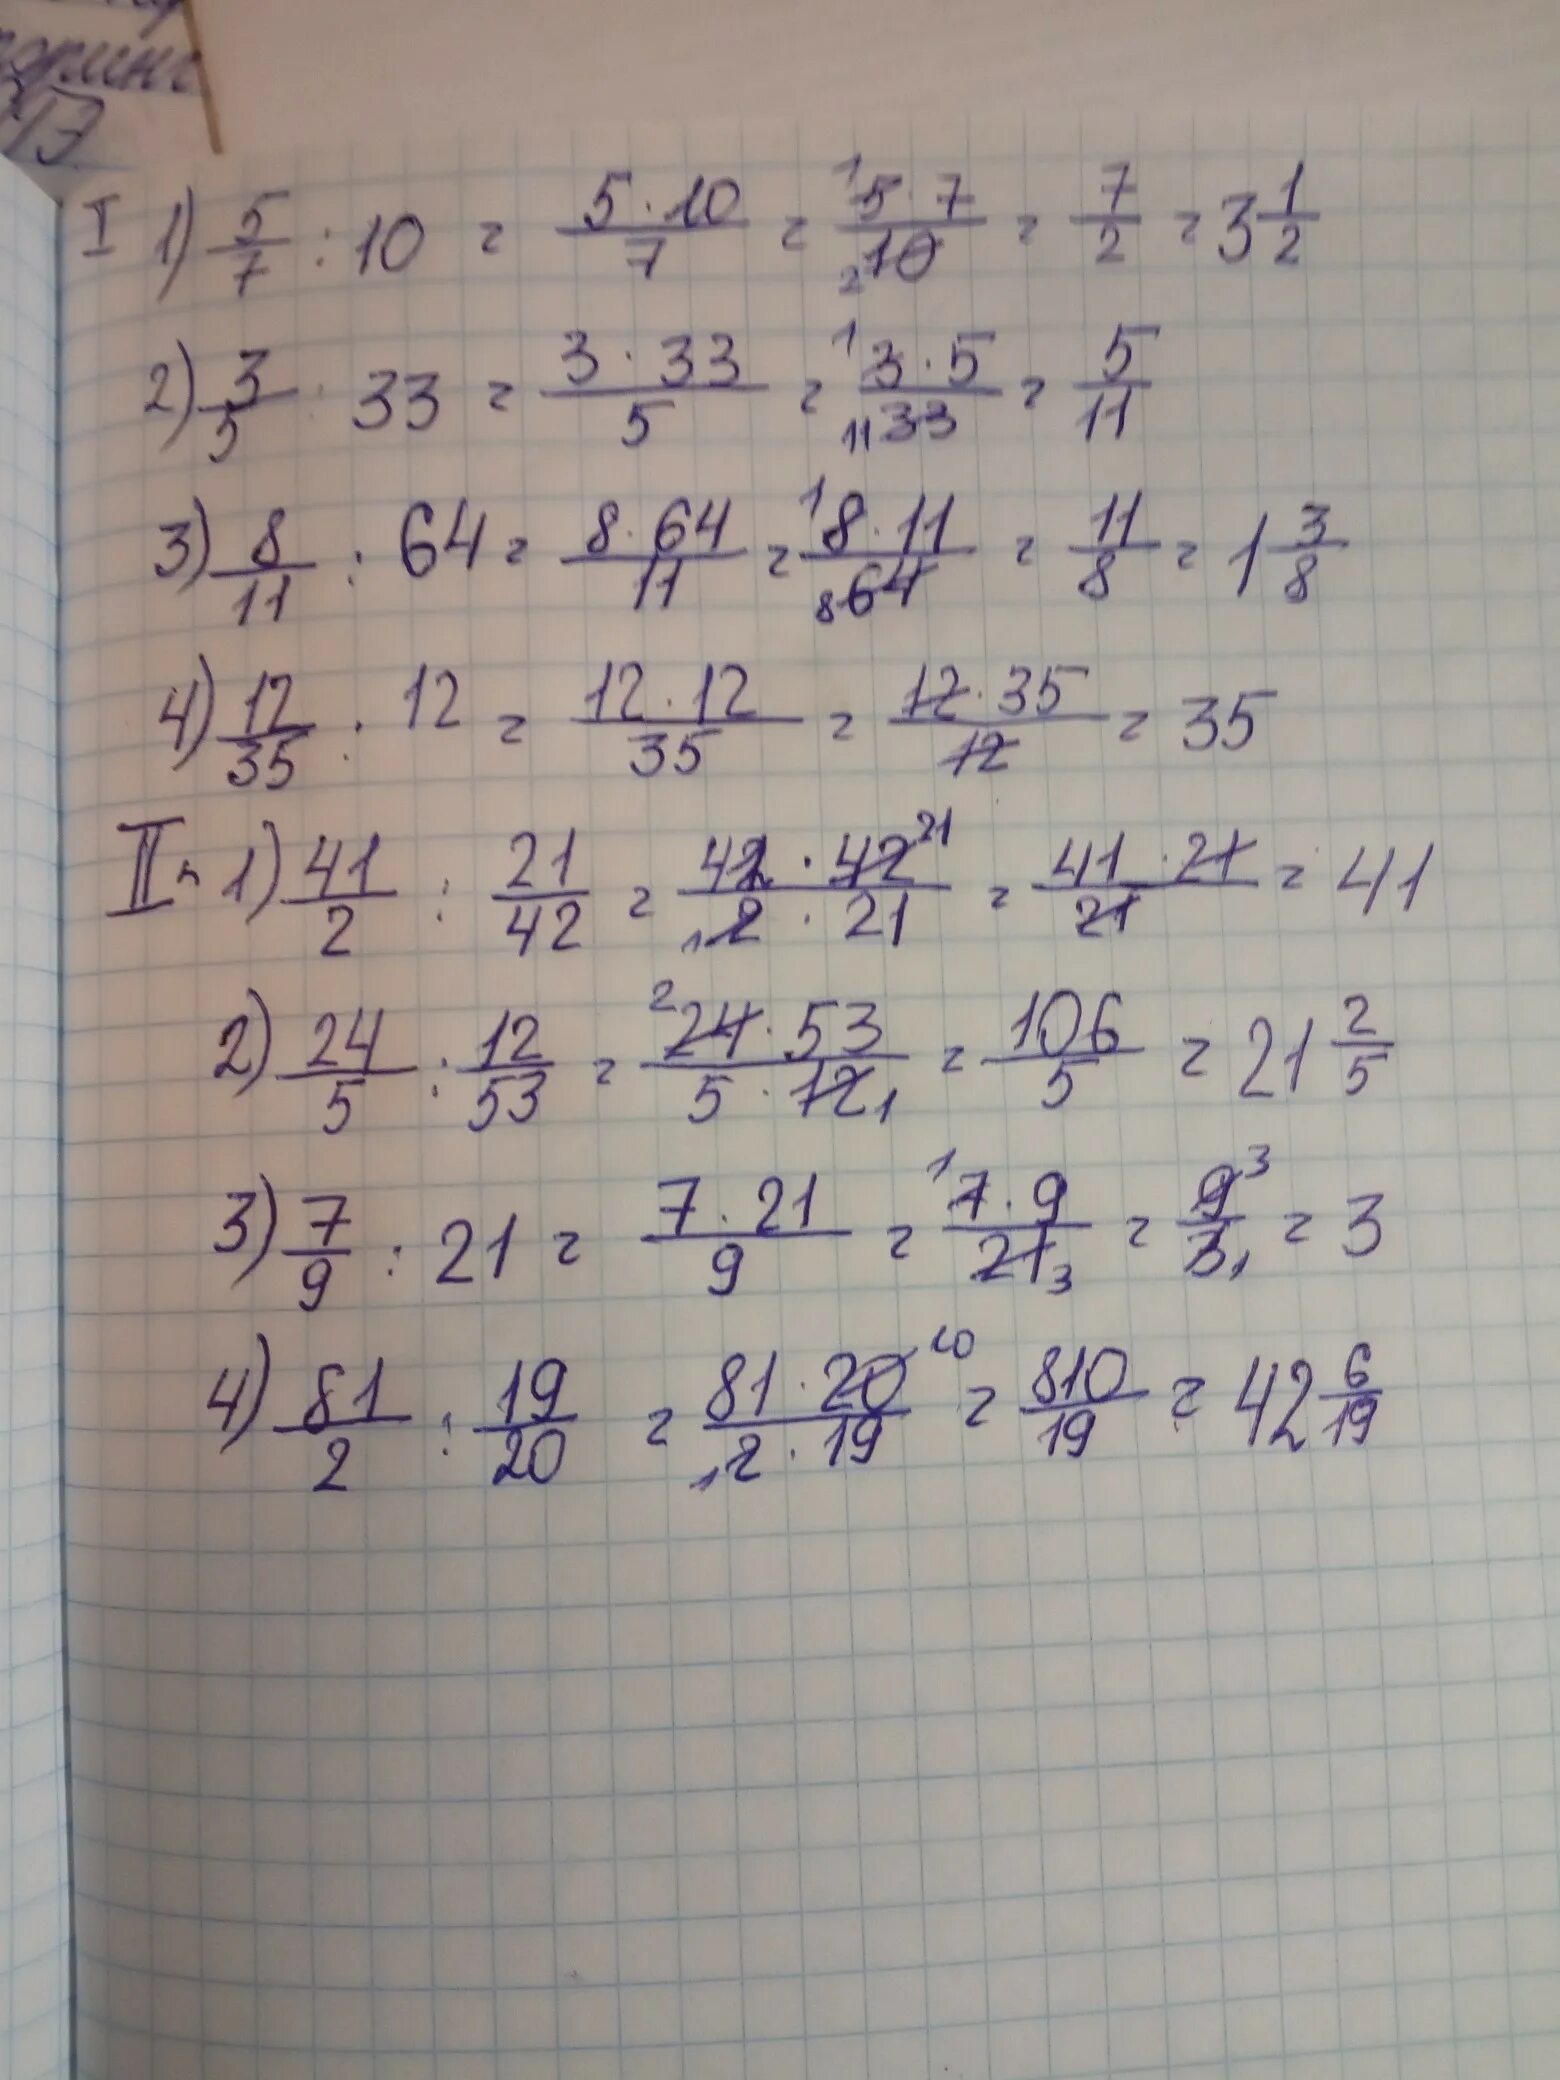 I 1) 5/7 : 10 = 5·10/7 = ¹5·7/₂10 = 7/2 = 3 1/2
2) 3/5 : 33 = 3·33/5 = ¹3·5/₁₁33 = 5/11
3) 8/11 : 64 = 8·64/11 = ¹8·11/₈64 = 11/8 = 1 3/8
4) 12/35 : 12 = 12·12/35 = 12·35/12 = 35
II 1) 41/2 : 21/42 = 42·42²¹/₁2·21 = 41·21/21 = 41
2) 24/5 : 12/53 = ²24·53/5·12₁ = 106/5 = 21 2/5
3) 7/9 : 21 = 7·21/9 = ¹7·9/21₃ = 9³/3₁ = 3
4) 81/2 : 19/20 = 81·20¹⁰/₁2·19 = 810/19 = 42 6/19